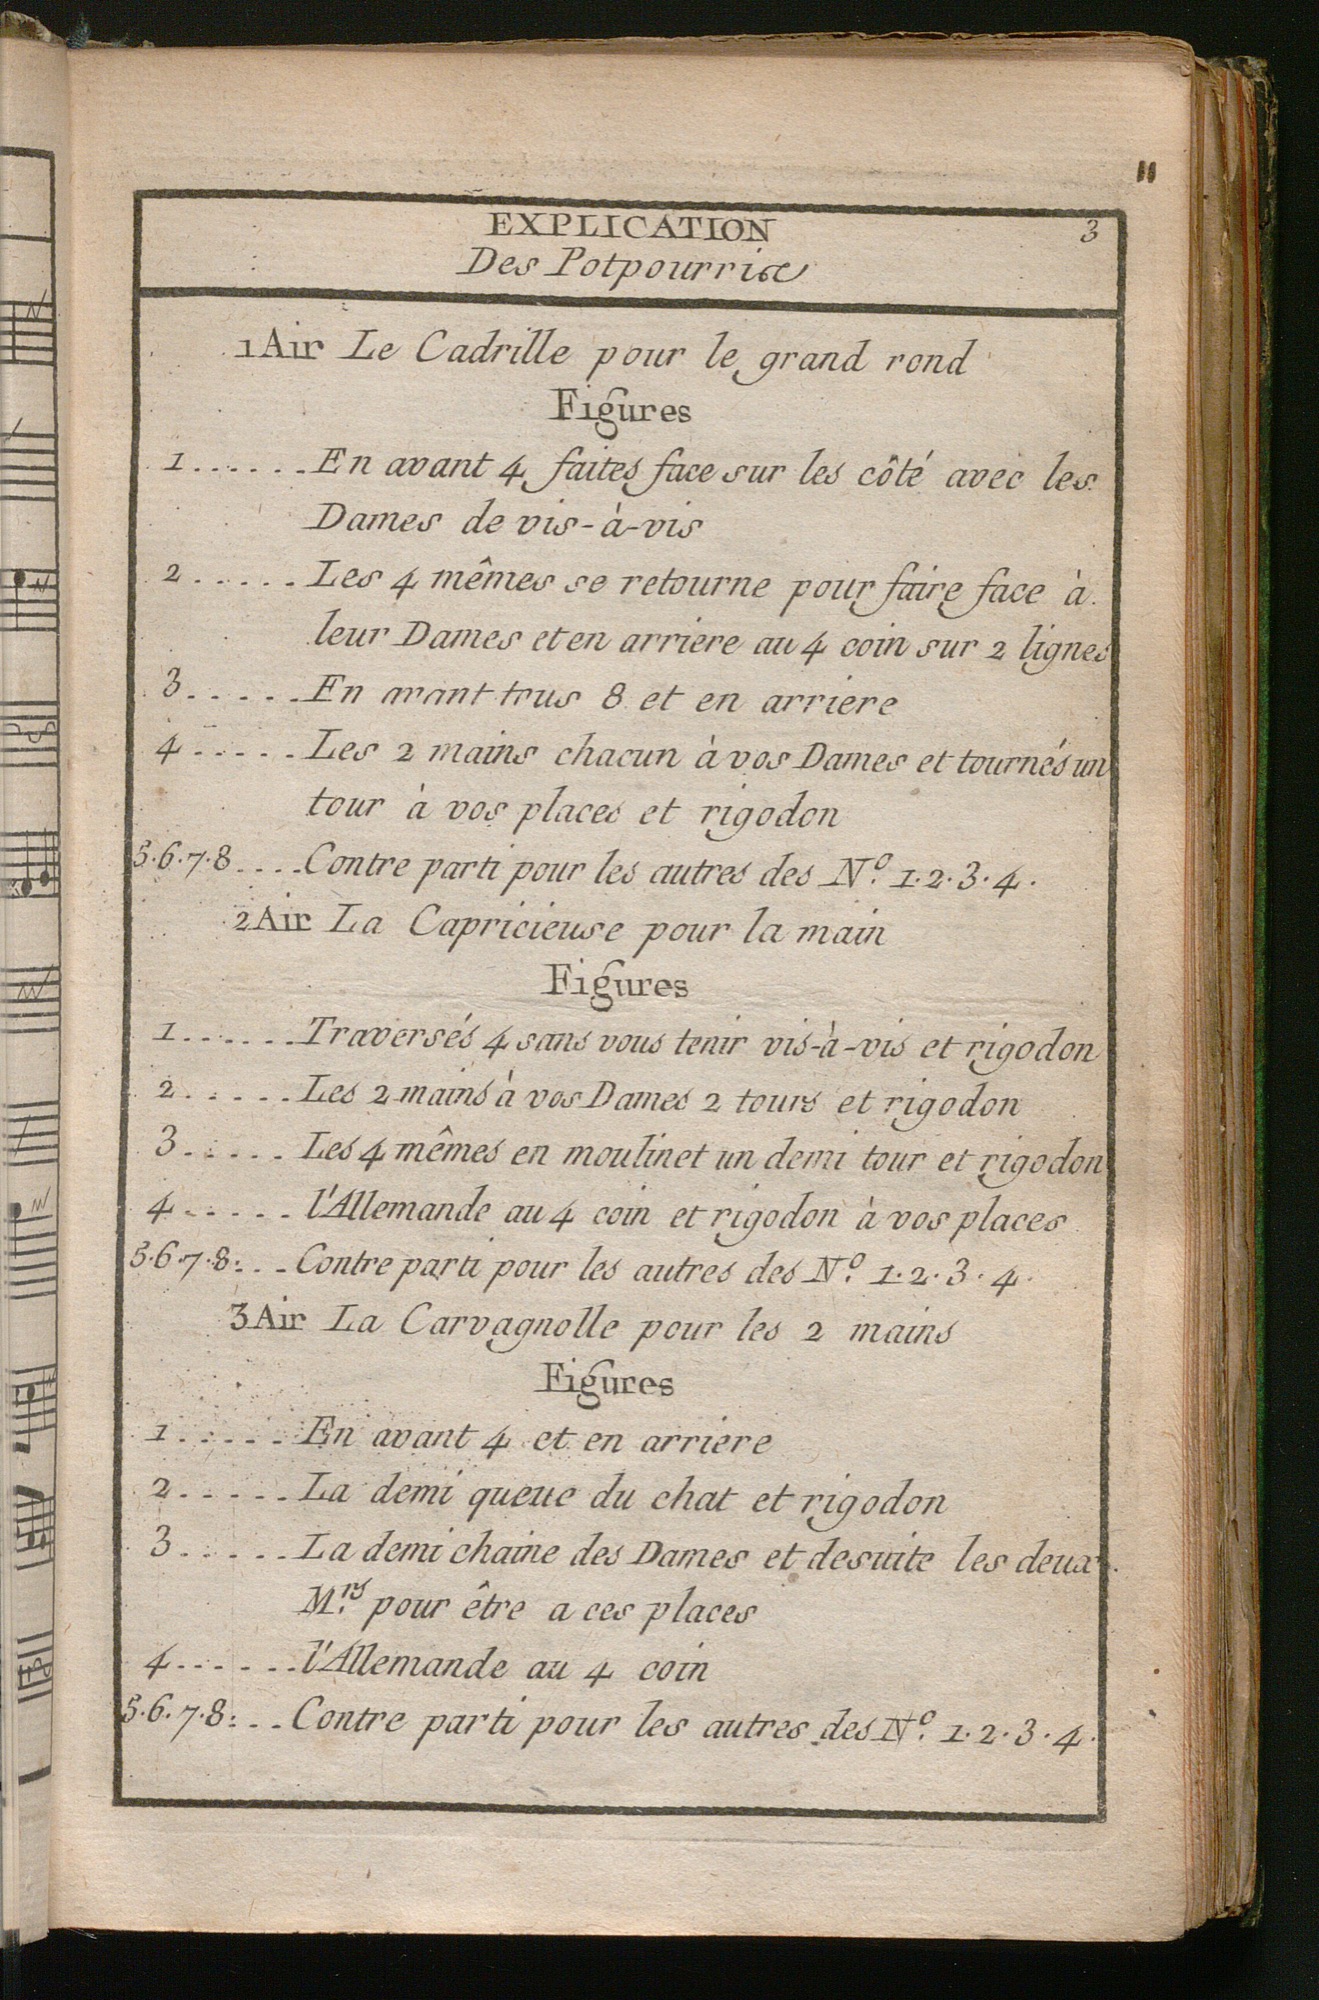 11
EXPLICATION 3
Des Potpourrix
1 Air Le Cadrille pour le grand rond
Figures
1......En avant 4 faites face sur les côté avec les
Dames de vis-à-vis
2......Les 4 mêmes se retourne pour faire face à
leur Dames et en arriere au 4 coin sur 2 lignes
3......En avant tous 8 et en arriere
4......Les 2 mains chacun à vos Dames et tournés un
tour à vos places et rigodon
5.6.7.8....Contre parti pour les autres des No. 1.2.3.4.
2 Air La Capricieuse pour la main
Figures
1......Traversés 4 sans vous tenir vis-à-vis et rigodon
2......Les 2 mains à vos Dames 2 tours et rigodon
3......Les 4 mêmes en moulinet un demi tour et rigodon
4......l'Allemande au 4 coin et rigodon à vos places
5.6.7.8:...Contre parti pour les autres des No. 1.2.3.4.
3 Air La Carvagnolle pour les 2 mains
Figures
1......En avant 4 et en arriere
2......La demi queue du chat et rigodon
3......La demi chaine des Dames et desuite les deux
Mrs. pour être a ces places
4......l'Allemande au 4 coin
5.6.7.8:...Contre parti pour les autres des No. 1.2.3.4.